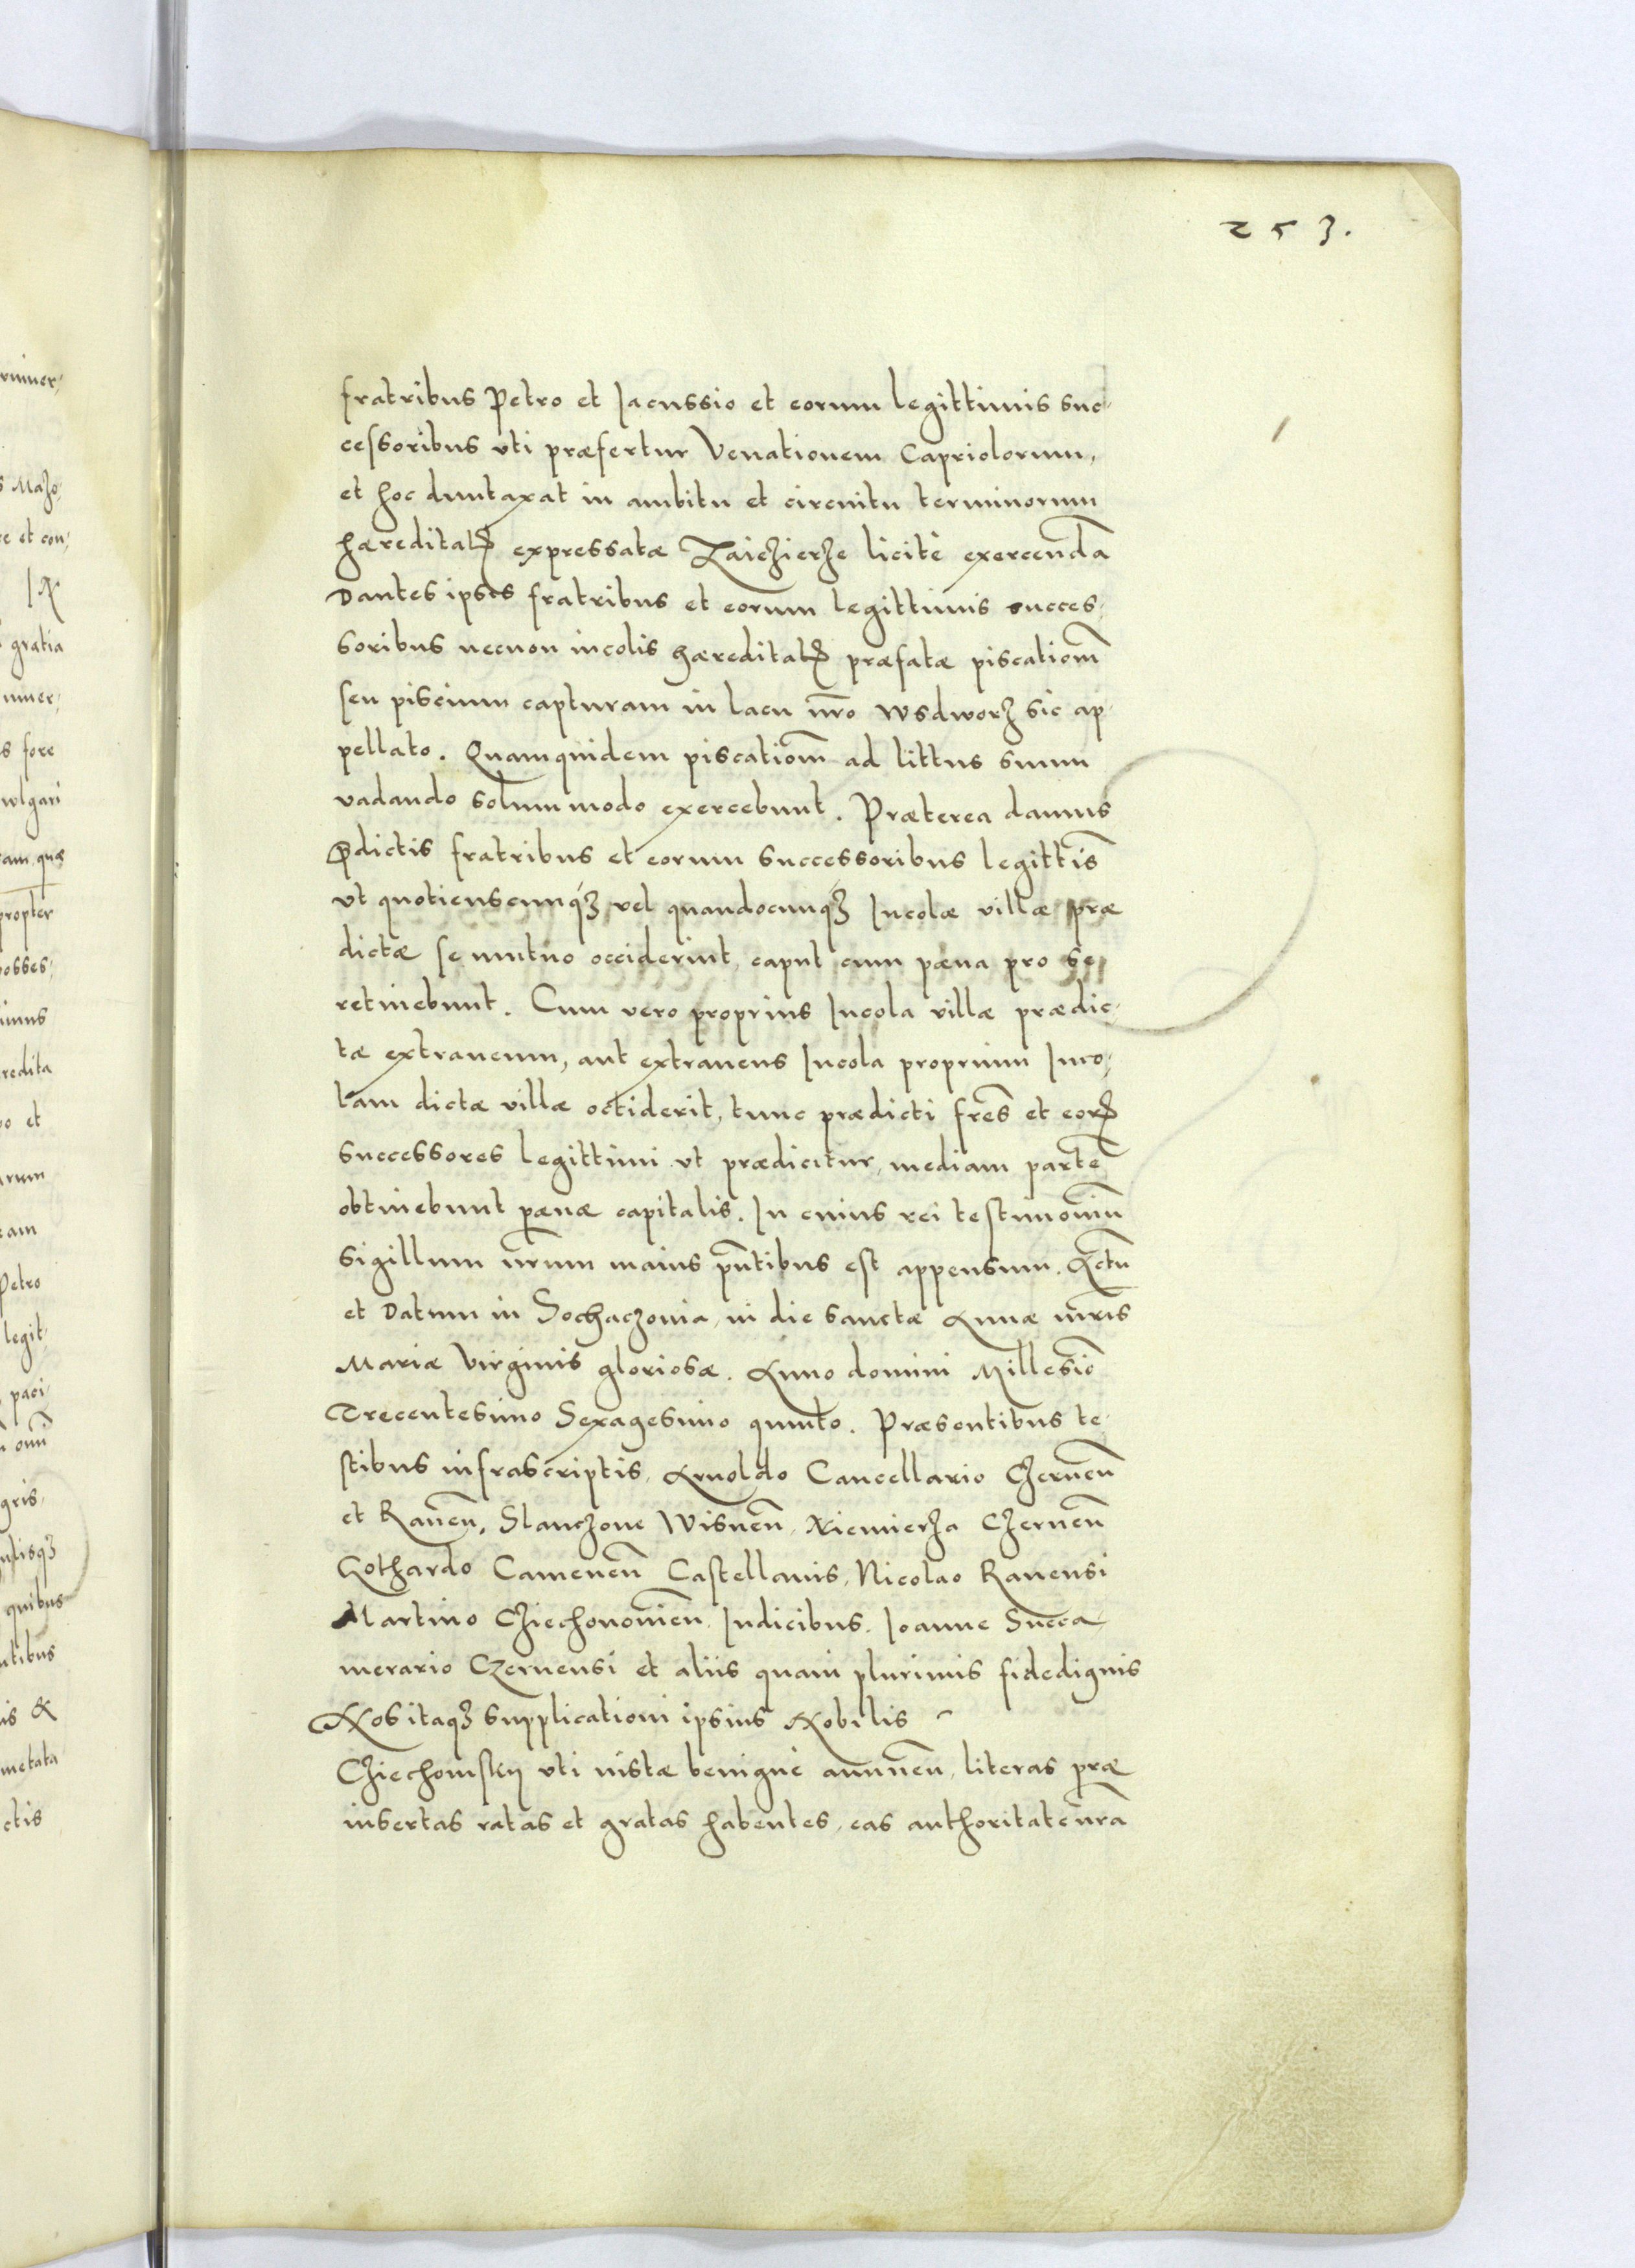 253.
fratribus Petro et Jacussio et eorum legittimis suc-
cessoribus vti præfertur Venationem Capriolorum,
et hoc duntaxat in ambitu et circuitu terminorum
hæreditatꝭ expressatæ Zaiczierze licitè exercendā
Dantes ipsis fratribus et eorum legittimis succes-
soribus necnon incolis hæreditatꝭ præfatæ piscatiom̄
seu piscium capturam in lacu nr̄o Wsdworz sic ap-
pellato. Quamquidem piscatiom̄ ad littus suum
vadando solummodo exercebunt. Præterea damus
p̄dictis fratribus et eorum successoribus legittīs
vt quotienscunqꝫ vel quandocunqꝫ Incolæ villæ præ
dictæ se mutuo occiderint, caput cum pæna pro se
retinebunt. Cum vero proprius Incola villæ prædic-
tæ extraneum, aut extraneus Incola proprium Inco-
lam dictæ villæ occiderit, tunc prædicti frēs et eorꝭ
successores legittimi vt prædicitur, mediam partē
obtinebunt pænæ capitalis. In cuius rei testimoniū
sigillum nr̄um maius pn̄tibus est appensum. Actū
et Datum in Sochaczouia, in die sanctæ Annæ mr̄is
Mariæ Virginis gloriosæ. Anno domini Millesīo
Trecentesimo Sexagesimo quinto. Præsentibus te-
stibus infrascriptis, Arnoldo Cancellario Czernen̄
et Raven̄, Slanczone Wisnen̄, Niemierza Czernen̄
Gothardo Camenen̄ Castellanis, Nicolao Ravensi
Martino Cziechonouien̄. Iudicibus. Ioanne Succa-
merario Czernensi et aliis quam plurimis fidedignis
Nos itaqꝫ supplicationi ipsius Nobilis
Cziechomsky vti iustæ benignè annuen̄, literas præ
insertas ratas et gratas habentes, eas authoritate nr̄a